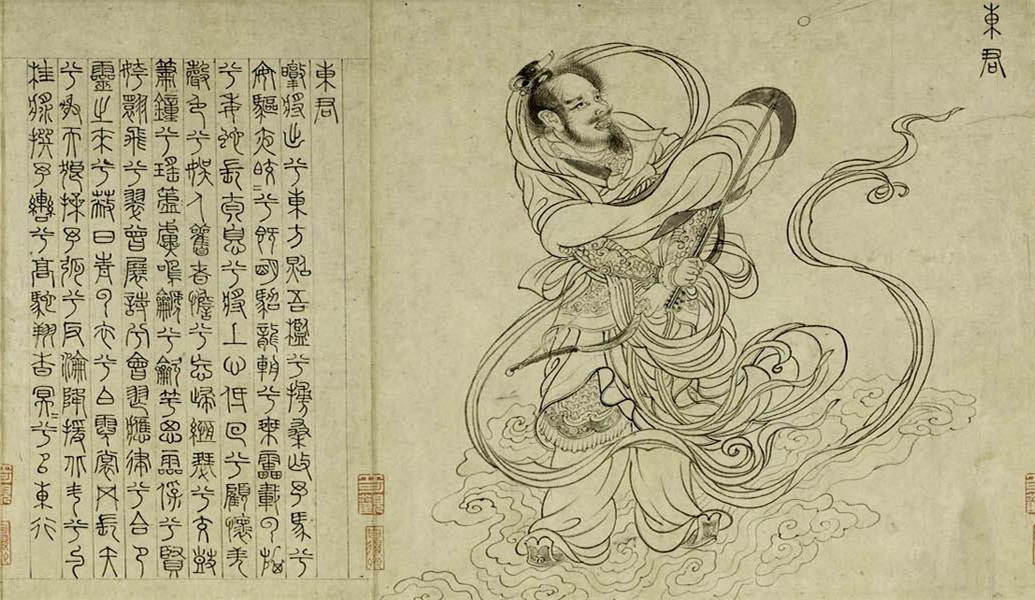 東君
東君
暾將出兮東方照吾檻兮榑桑撫予馬兮
安驅夜皎〻兮既明駕龍輈兮乘靁載雲旗
兮委蛇長太息兮將上心低佪兮顧懷羌
聲色兮娛人觀者憺兮忘歸緪瑟兮交鼓
簫鐘兮瑤虡鳴篪兮龡竽思靈保兮賢
姱翾飛兮翠曾展詩兮會舞應律兮合節
靈之來兮蔽日青雲衣兮白霓裳舉長矢
兮射天狼操予弧兮反淪降援北斗兮酌
桂漿撰予轡兮高駝翔杳冥〻兮以東行